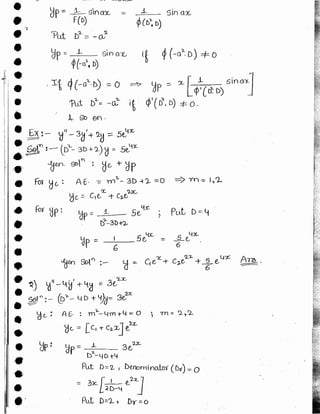 yp = 1/F(D) sin ax = 1/ϕ(D², D) sin ax
Put D² = -a²
yp = 1/ϕ(-a², D) sin ax if ϕ(-a², D) ≠ 0
If ϕ(-a², D) = 0 ⇒ yp = x [1/ϕ'(D², D) sin ax]
Put D² = -a² if ϕ'(D², D) ≠ 0.
& so on.
Ex:- y'' - 3y' + 2y = 5e^4x
Solⁿ:- (D² - 3D + 2)y = 5e^4x
gen. solⁿ : yc + yp
For yc : A.E. = m² - 3D + 2 = 0 ⇒ m = 1, 2
yc = C₁e^x + C₂e^2x
For yp: yp = 1/(D² - 3D + 2) 5e^4x ; Put D = 4
yp = 1/6 5e^4x = 5/6 e^4x
gen Solⁿ :- y = C₁e^x + C₂e^2x + 5/6 e^4x Ans.
2) y'' - 4y' + 4y = 3e^2x
Solⁿ:- (D² - 4D + 4)y = 3e^2x
yc : A.E. : m² - 4m + 4 = 0 ; m = 2, 2
yc = [C₁ + C₂x]e^2x
yp: yp = 1/(D² - 4D + 4) 3e^2x
Put D = 2, Denominator (Dr) = 0
= 3x [1/(2D - 4) e^2x]
Put D = 2, Dr = 0